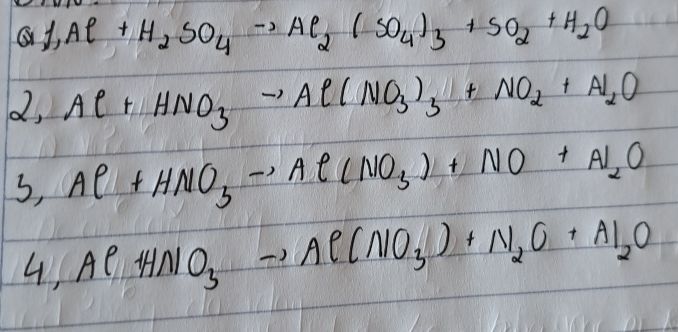 a 1, Al + H₂SO₄ → Al₂(SO₄)₃ + SO₂ + H₂O
2, Al + HNO₃ → Al(NO₃)₃ + NO₂ + Al₂O
3, Al + HNO₃ → Al(NO₃) + NO + Al₂O
4, Al + HNO₃ → Al(NO₃) + N₂O + Al₂O